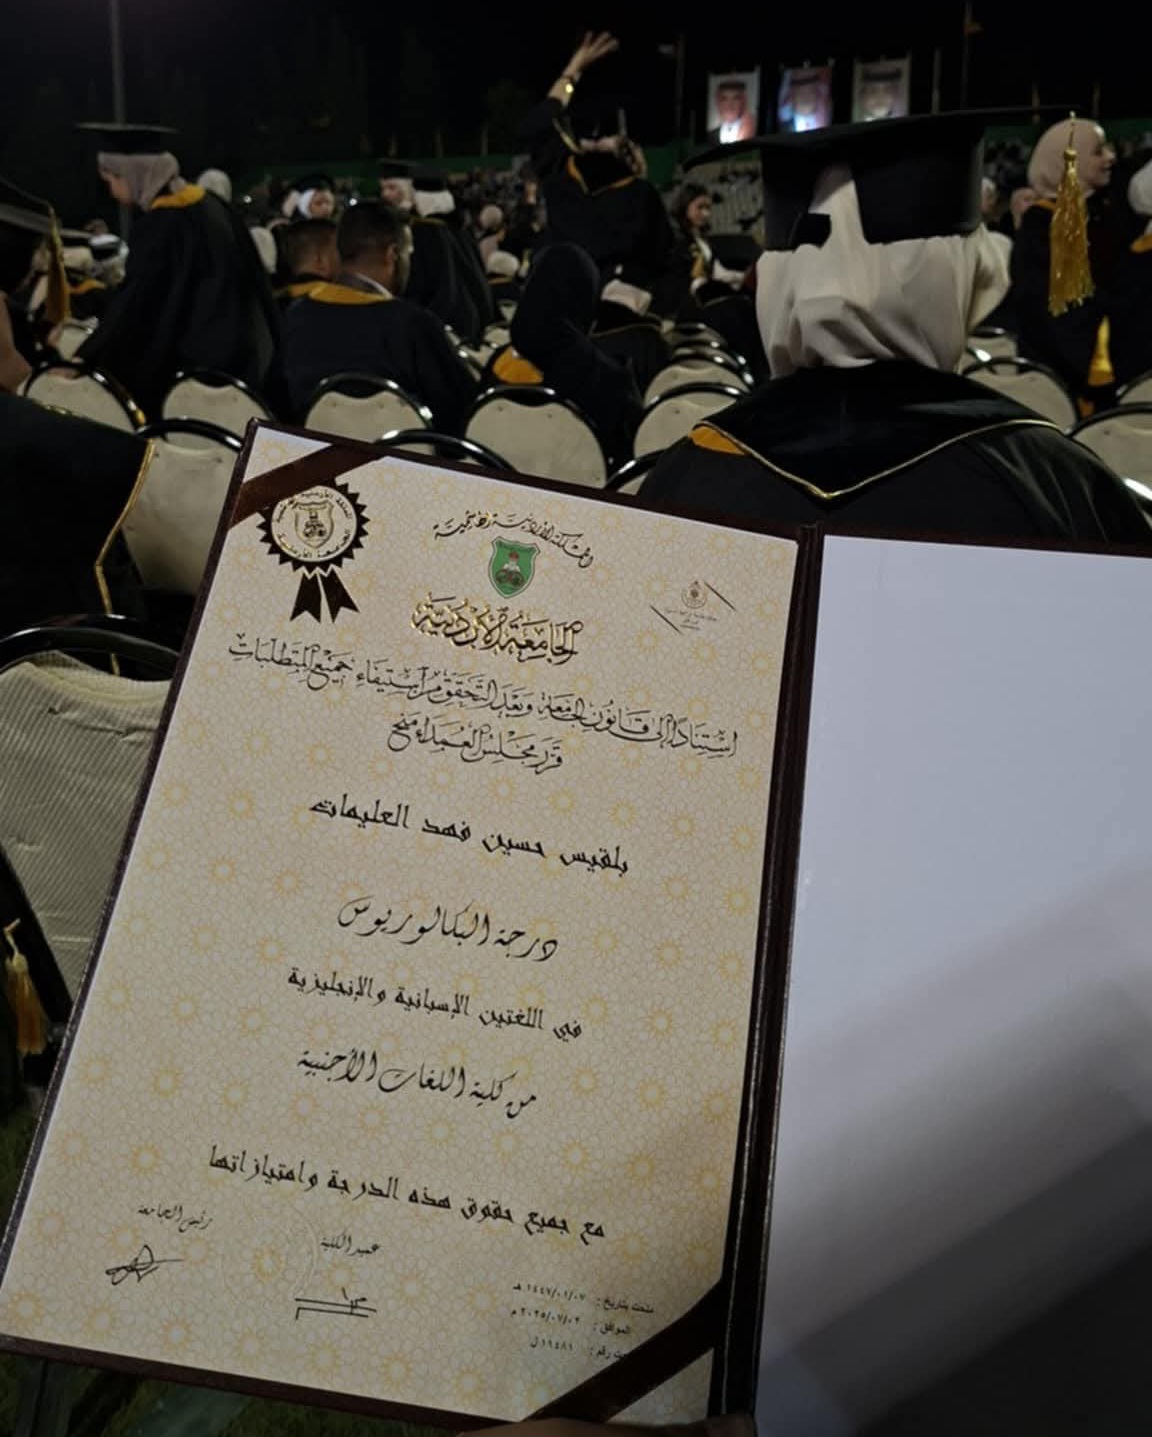 المملكة الأردنية الهاشمية
الجامعة الأردنية
استنادًا إلى قانون الجامعة وبعد التحقق من استيفاء جميع المتطلبات
قرر مجلس العمداء منح
بلقيس حسين فهد العليمات
درجة البكالوريوس
في اللغتين الإسبانية والإنجليزية
من كلية اللغات الأجنبية
مع جميع حقوق هذه الدرجة وامتيازاتها
رئيس الجامعة
عميد الكلية
منحت بتاريخ : ١٤٤٧/٠١/٠٧ هـ
الموافق : ٢٠٢٥/٠٧/٠٢ م
رقم : ١٩٤٨١ ل